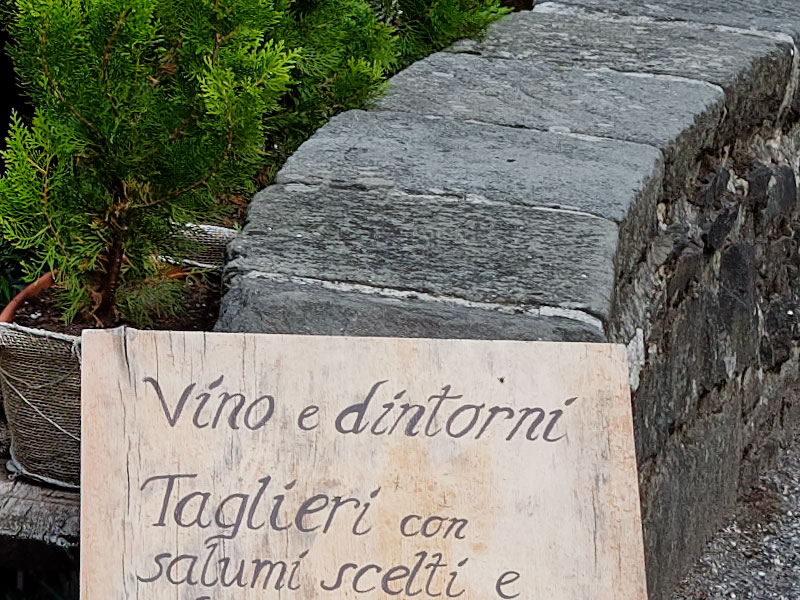 Vino e dintorni
Taglieri con
salumi scelti e